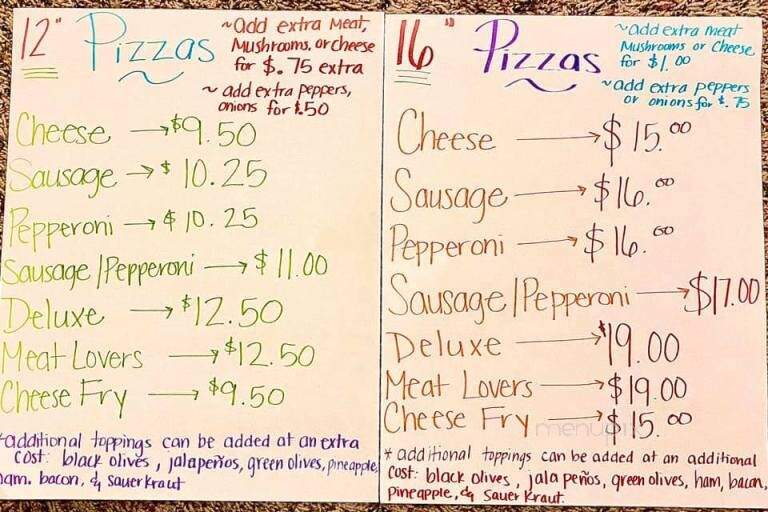 12" Pizzas
~Add extra Meat,
Mushrooms, or Cheese
for $.75 extra
~ add extra peppers,
onions for $.50
Cheese → $9.50
Sausage → $10.25
Pepperoni → $10.25
Sausage/Pepperoni → $11.00
Deluxe → $12.50
Meat Lovers → $12.50
Cheese Fry → $9.50
*additional toppings can be added at an extra
cost: black olives, jalapeños, green olives, pineapple,
ham, bacon, & Sauerkraut
16" Pizzas
~add extra meat
Mushrooms or Cheese
for $1.00
~add extra peppers
or onions for $.75
Cheese → $15.00
Sausage → $16.00
Pepperoni → $16.00
Sausage/Pepperoni → $17.00
Deluxe → $19.00
Meat Lovers → $19.00
Cheese Fry → $15.00
* additional toppings can be added at an additional
cost: black olives, jalapeños, green olives, ham, bacon,
pineapple, & Sauerkraut